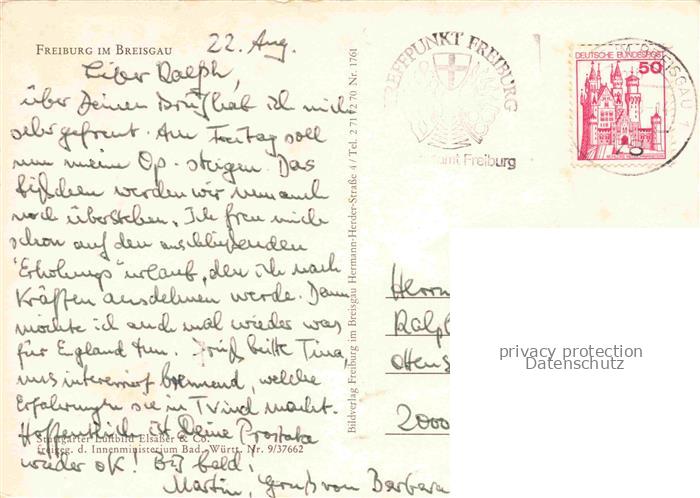 FREIBURG IM BREISGAU
22. Aug.
Lieber Ralph,
über Deinen Brief hab ich mich
sehr gefreut. Am Freitag soll
nun meine Op. steigen. Das
bißchen werden wir nun auch
noch überstehen. Ich freu mich
schon auf den anschließenden
"Erholungs"urlaub, den ich nach
Kräften ausdehnen werde. Dann
möchte ich auch mal wieder was
für England tun. Grüß bitte Tina,
uns interessiert brennend, welche
Erfahrungen sie in Tvind macht.
Hoffentlich ist Deine Prostata
wieder ok! Bis bald!
Martin, Gruß von Barbara
Stuttgarter Luftbild Elsäßer & Co.
freigeg. d. Innenministerium Bad.-Württ. Nr. 9/37662
Bildverlag Freiburg im Breisgau Hermann-Herder-Straße 4 / Tel. 2 71 72 70 Nr. 1761
TREFFPUNKT FREIBURG
amt Freiburg
DEUTSCHE BUNDESPOST
50
BREISGAU 1
Herrn
Ralph
Ottens
2000
privacy protection
Datenschutz